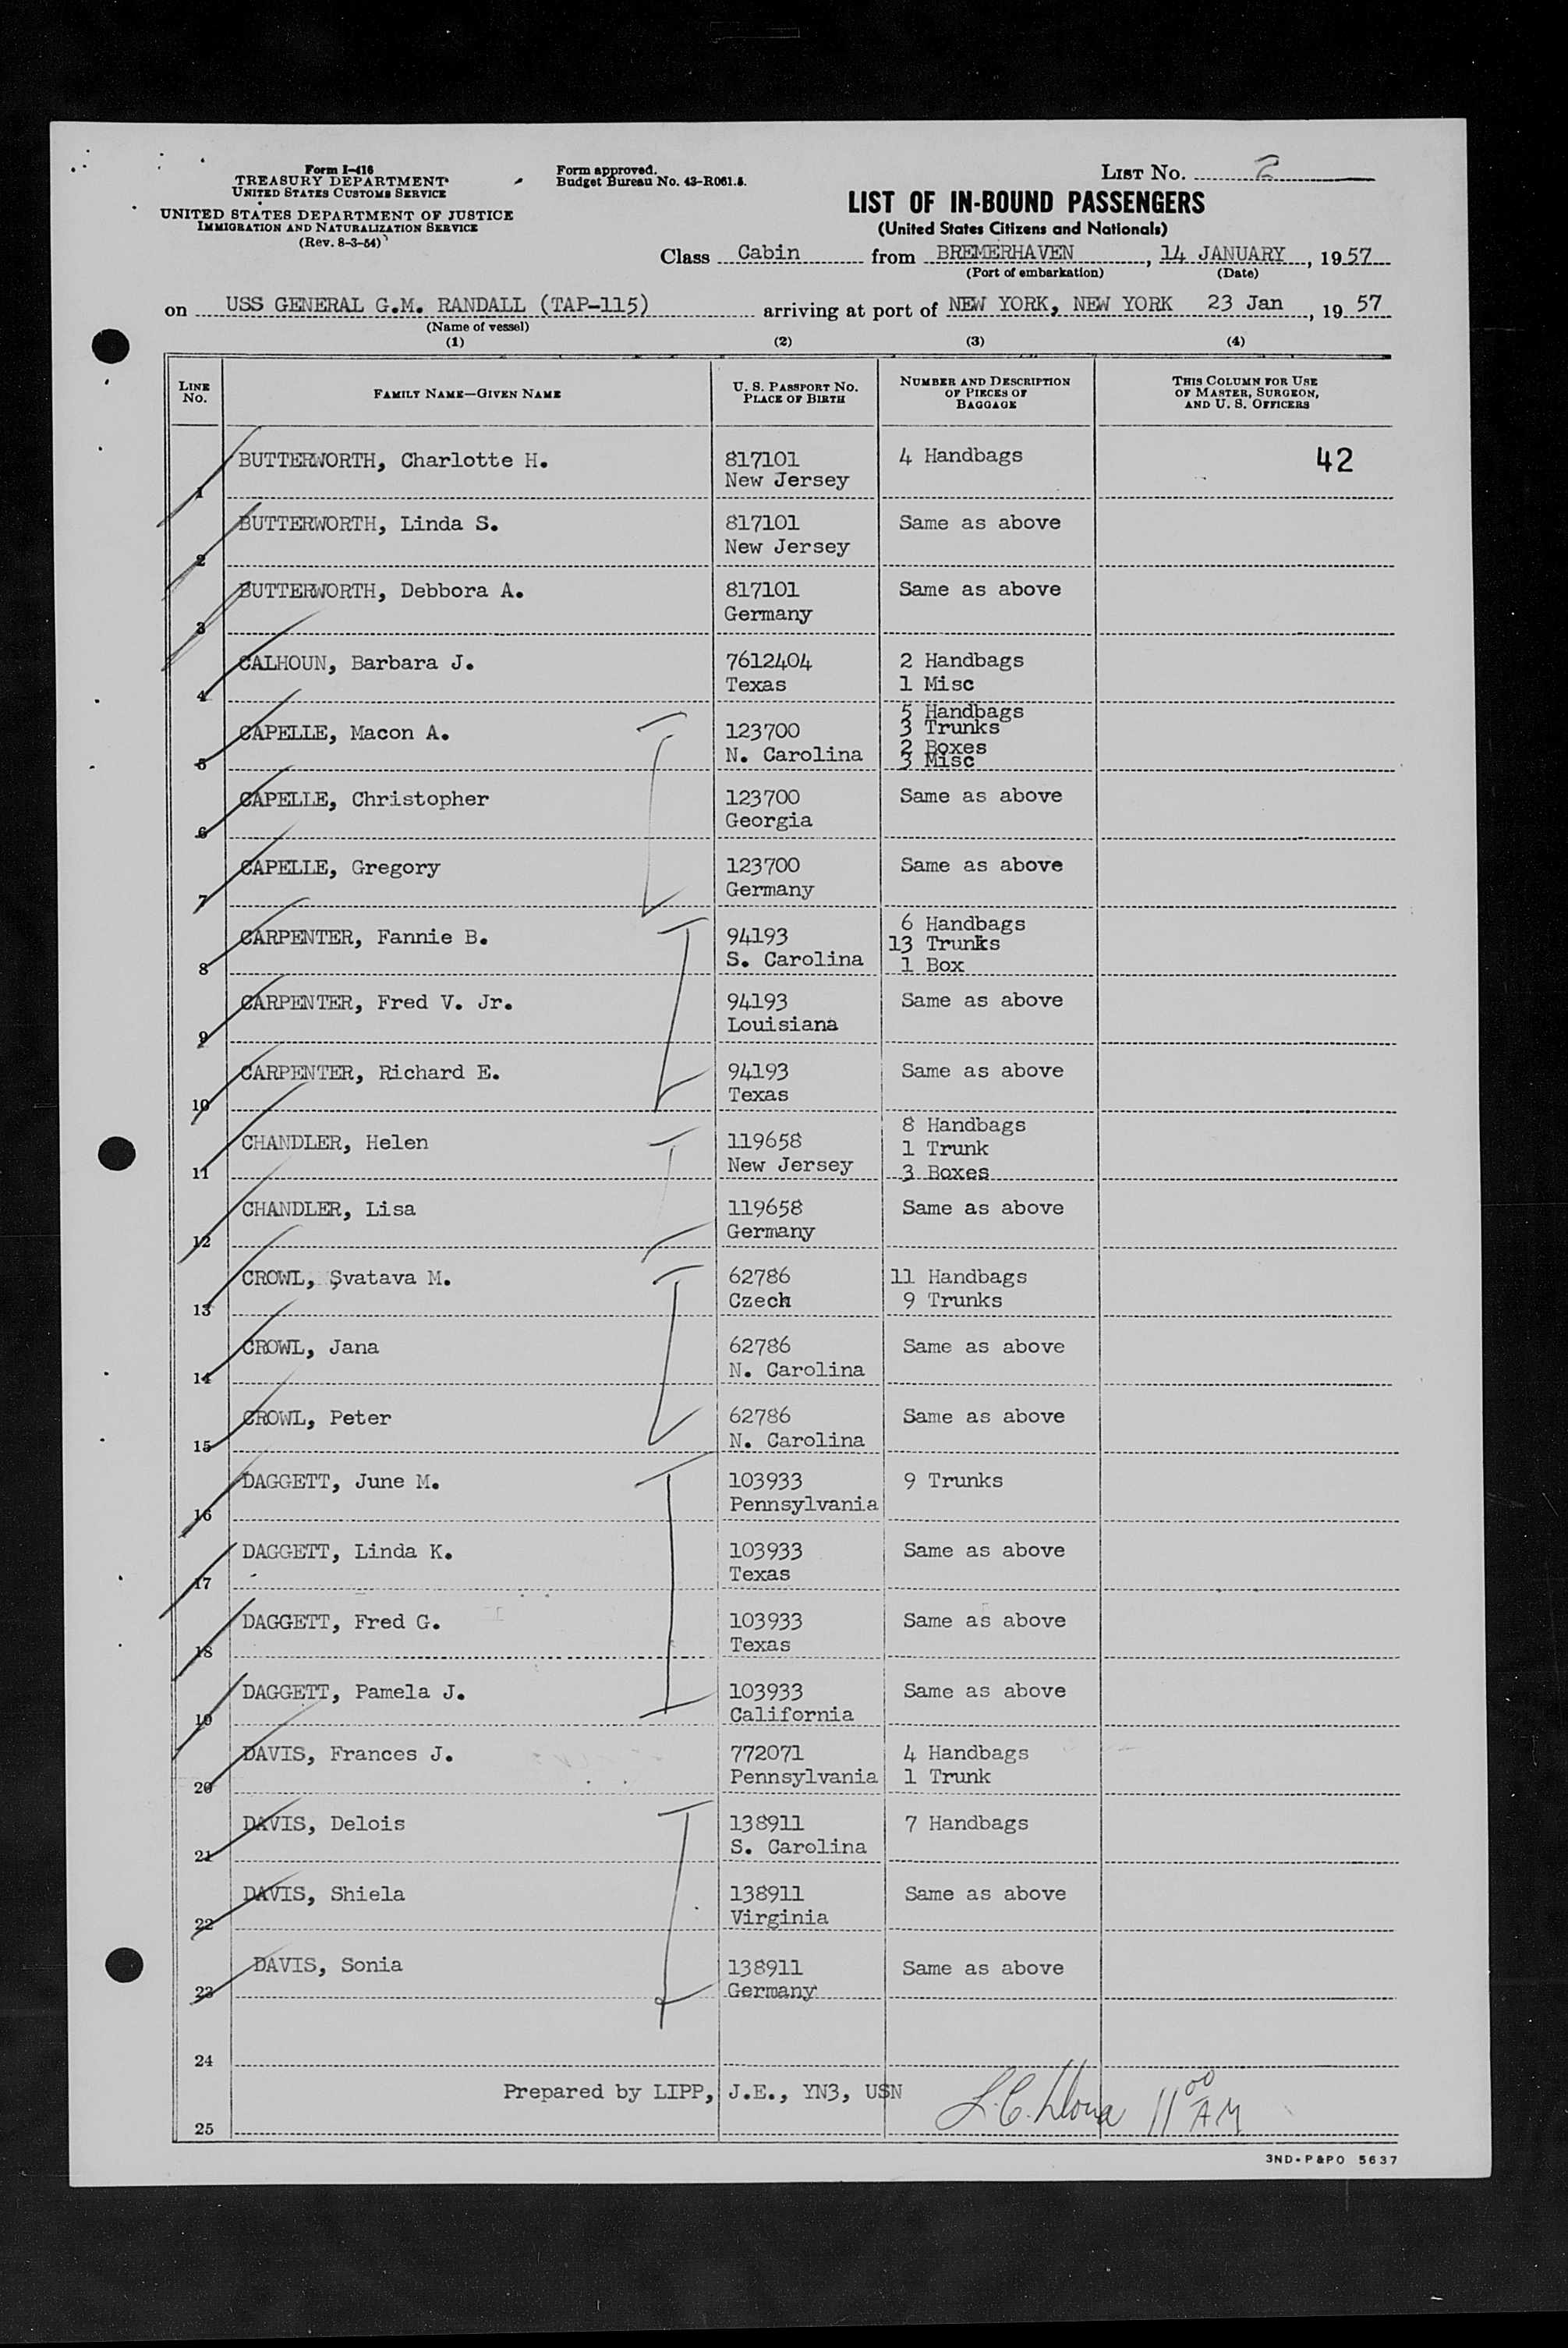 Form I-416
TREASURY DEPARTMENT
UNITED STATES CUSTOMS SERVICE
UNITED STATES DEPARTMENT OF JUSTICE
IMMIGRATION AND NATURALIZATION SERVICE
(Rev. 8-3-54)
Form approved.
Budget Bureau No. 43-R061.5.
LIST NO. 2
LIST OF IN-BOUND PASSENGERS
(United States Citizens and Nationals)
Class Cabin from BREMERHAVEN, 14 JANUARY, 1957
(Port of embarkation) (Date)
on USS GENERAL G.M. RANDALL (TAP-115) arriving at port of NEW YORK, NEW YORK 23 Jan, 1957
(Name of vessel)
(1) (2) (3) (4)
LINE NO. FAMILY NAME—GIVEN NAME U. S. PASSPORT NO. PLACE OF BIRTH NUMBER AND DESCRIPTION OF PIECES OF BAGGAGE THIS COLUMN FOR USE OF MASTER, SURGEON, AND U. S. OFFICERS
1 BUTTERWORTH, Charlotte H. 817101 New Jersey 4 Handbags 42
2 BUTTERWORTH, Linda S. 817101 New Jersey Same as above
3 BUTTERWORTH, Debbora A. 817101 Germany Same as above
4 CALHOUN, Barbara J. 7612404 Texas 2 Handbags 1 Misc
5 CAPELLE, Macon A. 123700 N. Carolina 5 Handbags 3 Trunks 2 Boxes 3 Misc
6 CAPELLE, Christopher 123700 Georgia Same as above
7 CAPELLE, Gregory 123700 Germany Same as above
8 CARPENTER, Fannie B. 94193 S. Carolina 6 Handbags 13 Trunks 1 Box
9 CARPENTER, Fred V. Jr. 94193 Louisiana Same as above
10 CARPENTER, Richard E. 94193 Texas Same as above
11 CHANDLER, Helen 119658 New Jersey 8 Handbags 1 Trunk 3 Boxes
12 CHANDLER, Lisa 119658 Germany Same as above
13 CROWL, Svatava M. 62786 Czech 11 Handbags 9 Trunks
14 CROWL, Jana 62786 N. Carolina Same as above
15 CROWL, Peter 62786 N. Carolina Same as above
16 DAGGETT, June M. 103933 Pennsylvania 9 Trunks
17 DAGGETT, Linda K. 103933 Texas Same as above
18 DAGGETT, Fred G. 103933 Texas Same as above
19 DAGGETT, Pamela J. 103933 California Same as above
20 DAVIS, Frances J. 772071 Pennsylvania 4 Handbags 1 Trunk
21 DAVIS, Delois 138911 S. Carolina 7 Handbags
22 DAVIS, Shiela 138911 Virginia Same as above
23 DAVIS, Sonia 138911 Germany Same as above
24
Prepared by LIPP, J.E., YN3, USN
25 L.C. 11 00 AM
3ND-P&PO 5637